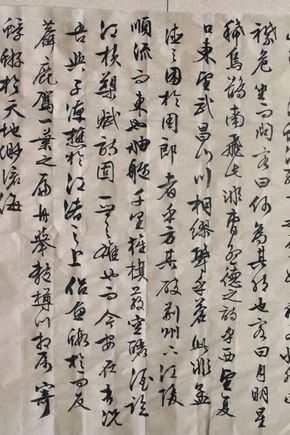 襟危坐而問客曰何為其然也客曰月明星
稀烏鵲南飛此非曹孟德之詩乎西望夏
口東望武昌山川相繆鬱乎蒼蒼此非孟
德之困於周郎者乎方其破荆州下江陵
順流而東也舳艫千里旌旗蔽空釃酒臨
江橫槊賦詩固一世之雄也而今安在哉況
吾與子漁樵於江渚之上侶魚蝦而友
麋鹿駕一葉之扁舟舉匏樽以相屬寄
蜉蝣於天地渺滄海